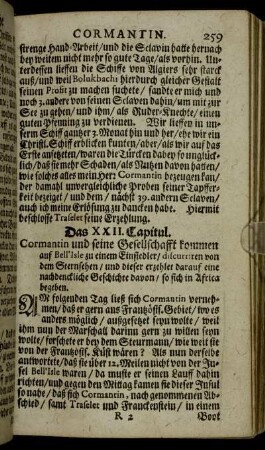 CORMANTIN. 259
strenge Hand-Arbeit/und die Sclavin hatte hernach
bey weitem nicht mehr so gute Tage/als vorhin. Un-
terdessen lieffen die Schiffe von Algiers sehr starck
auß/und weil Bolukbachi hierdurch gleicher Gestalt
seinen Profit zu machen suchete/ sandte er mich und
noch 3. andere von seinen Sclaven dahin/um mit zur
See zu gehen/ und ihm/ als Ruder-Knechte/ einen
guten Pfenning zu verdienen. Wir lieffen in un-
serm Schiff gantzer 3. Monat hin und her/ehe wir ein
Christl. Schiff erblicken kunten/aber/als wir auf das
Erste ansetzten/waren die Türcken dabey so unglück-
lich/ daß sie mehr Schaden/als Nutzen davon hatten/
wie solches alles mein Herr Cormantin bezeugen kan/
der damahl unvergleichliche Proben seiner Tapffer-
keit bezeiget/ und dem / nächst 39. andern Sclaven/
auch ich meine Erlösung zu dancken habe. Hiermit
beschlosse Traseler seine Erzehlung.
Das XXII. Capitul.
Cormantin und seine Gesellschafft kommen
auf Bell'Isle zu einem Einsiedler/ discuriren von
dem Sternsehen / und dieser erzehlet darauf eine
nachdenckliche Geschichte davon / so sich in Africa
begeben.
AM folgenden Tag ließ sich Cormantin verneh-
men/ daß er gern ans Frantzösif. Gebiet/ wo es
anders möglich / außgesetzet seyn wolte/ weil
ihm nun der Marschall darinn gern zu willen seyn
wolte/forschete er bey dem Steurmann/ wie weit sie
von der Frantzösif. Küst wären? Als nun derselbe
antwortete/daß sie über 12. Meilen nicht von der In-
sel Bell'Isle wären / da muste er seinen Lauff dahin
richten/und gegen den Mittag kamen sie dieser Insul
so nahe/ daß sich Cormantin, nach genommenen Ab-
schied/ samt Traseler und Franckenstein / in einem
R 2 Boot